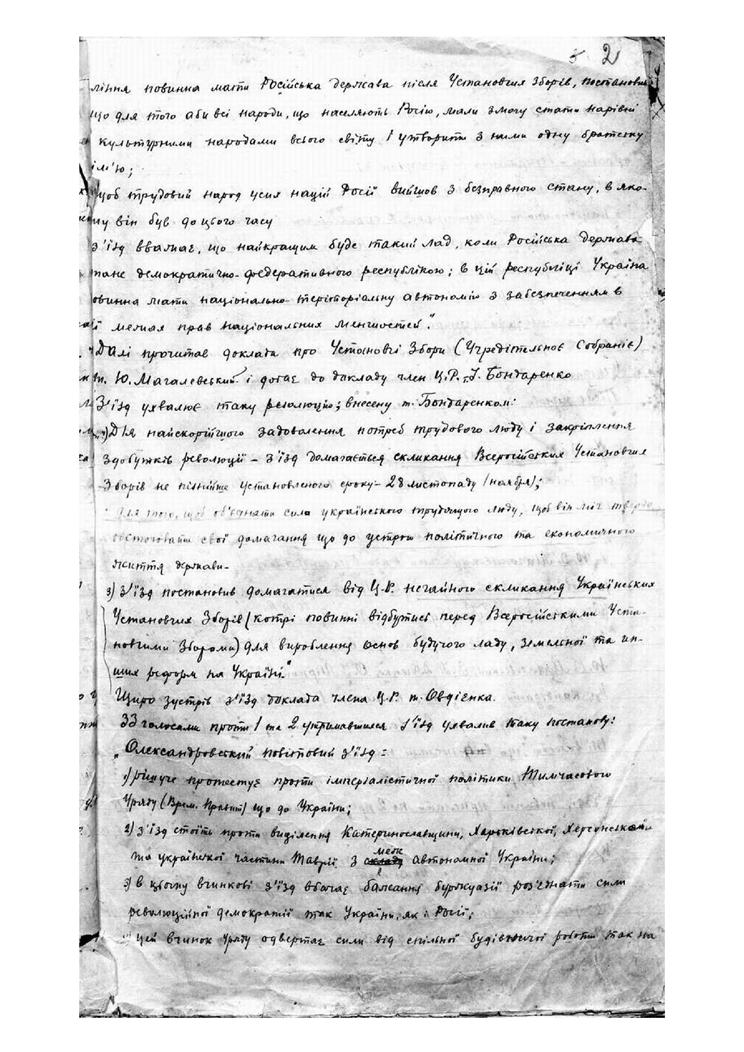 2
ління повинна мати Російська держава після Установчих Зборів, постановив
що для того аби всі народи, що населяють Росію, мали змогу стати нарівні
культурними народами всього світу і утворити з ними одну братську
ім'ю;
щоб трудовий народ усих націй Росії вийшов з безправного стану, в яко-
му він був до цього часу
з'їзд вважає, що найкращим буде такий лад, коли Російська держава
тане демократично-федеративного республікою; в цій республіці Україна
овинна мати національно-теріторіальну автономію з забезпеченням в
її межах прав національних меншостей".
Далі прочитав доклада про Установчі Збори (Учредітельноє Собраніє)
т. Ю. Магалевський і додає до докладу член Ц.Р. І. Бондаренко
З'їзд ухвалює таку резолюцію, внесену т. Бондаренком:
Для найскорійшого задоволення потреб трудового люду і закріплення
здобутків революції – з'їзд домагається скликання Всеросійських Установчих
Зборів не пізнійше установленого сроку – 28 листопаду (ноября);
Для того, щоб об'єднати силу українського трудящого люду, щоб він міг твердо
обстоювати свої домагання що до устрою політичного та економичного
життя держави–
з) з'їзд постановив домагатися від Ц.Р. негайного скликання Українських
Установчих Зборів (котрі повинні відбутись перед Всеросійськими Уста-
новчими Зборами) для вироблення основ будучого ладу, земельної та ин-
ших реформ на Україні."
Щиро зустрів з'їзд доклада члена Ц.Р. т. Овдієнка.
33 голосами проти 1 та 2 утримавшихся з'їзд ухвалив таку постанову:
„Олександровський повітовий з'їзд:
1) рішуче протестує проти імперіалістичної політики Тимчасового
Уряду (Врем. Правит) що до України;
2) з'їзд стоїть проти виділення Катеринославщини, Харьківської, Херсонської
та української частини Таврії з меж автономної України;
3) в цьому вчинкові з'їзд вбачає бажання буржуазії роз'єднати сили
революційної демократії так України, як і Росії;
цей вчинок уряду одвертає сили від спільної будівничої роботи так на